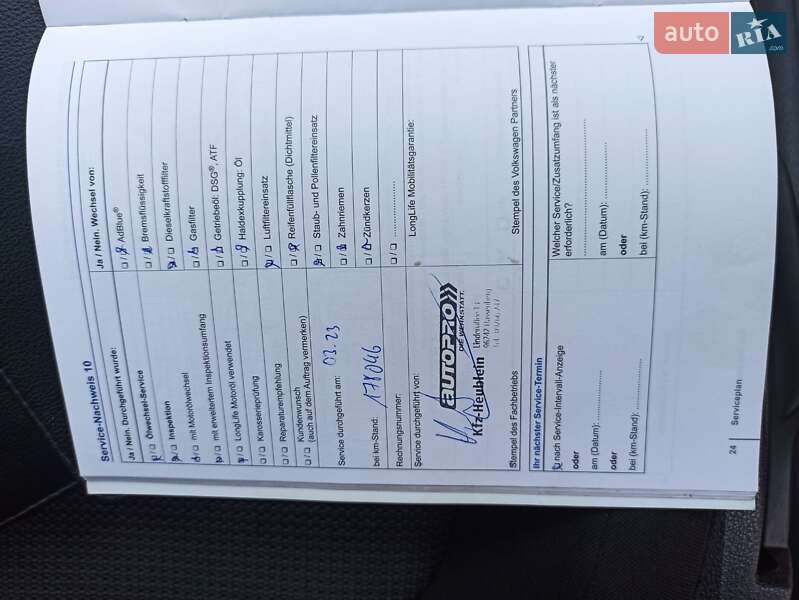 auto RIA .com
Service-Nachweis 10
Ja / Nein. Durchgeführt wurde:
Ölwechsel-Service
Inspektion
mit Motorölwechsel
mit erweitertem Inspektionsumfang
LongLife Motoröl verwendet
Karosserieprüfung
Reparaturempfehlung
Kundenwunsch
(auch auf dem Auftrag vermerken)
Service durchgeführt am: 03.23
bei km-Stand: 178046
Rechnungsnummer:
Service durchgeführt von:
AUTOPRO
DIE WERKSTATT.
Kfz-Heublein
Stempel des Fachbetriebs
Ja / Nein. Wechsel von:
AdBlue®
Bremsflüssigkeit
Dieselkraftstofffilter
Gasfilter
Getriebeöl: DSG®, ATF
Haldexkupplung: Öl
Luftfiltereinsatz
Reifenfüllflasche (Dichtmittel)
Staub- und Pollenfiltereinsatz
Zahnriemen
Zündkerzen
LongLife Mobilitätsgarantie:
Stempel des Volkswagen Partners
Ihr nächster Service-Termin
nach Service-Intervall-Anzeige
oder
am (Datum):
oder
bei (km-Stand):
Welcher Service/Zusatzumfang ist als nächster
erforderlich?
am (Datum):
oder
bei (km-Stand):
24
Serviceplan